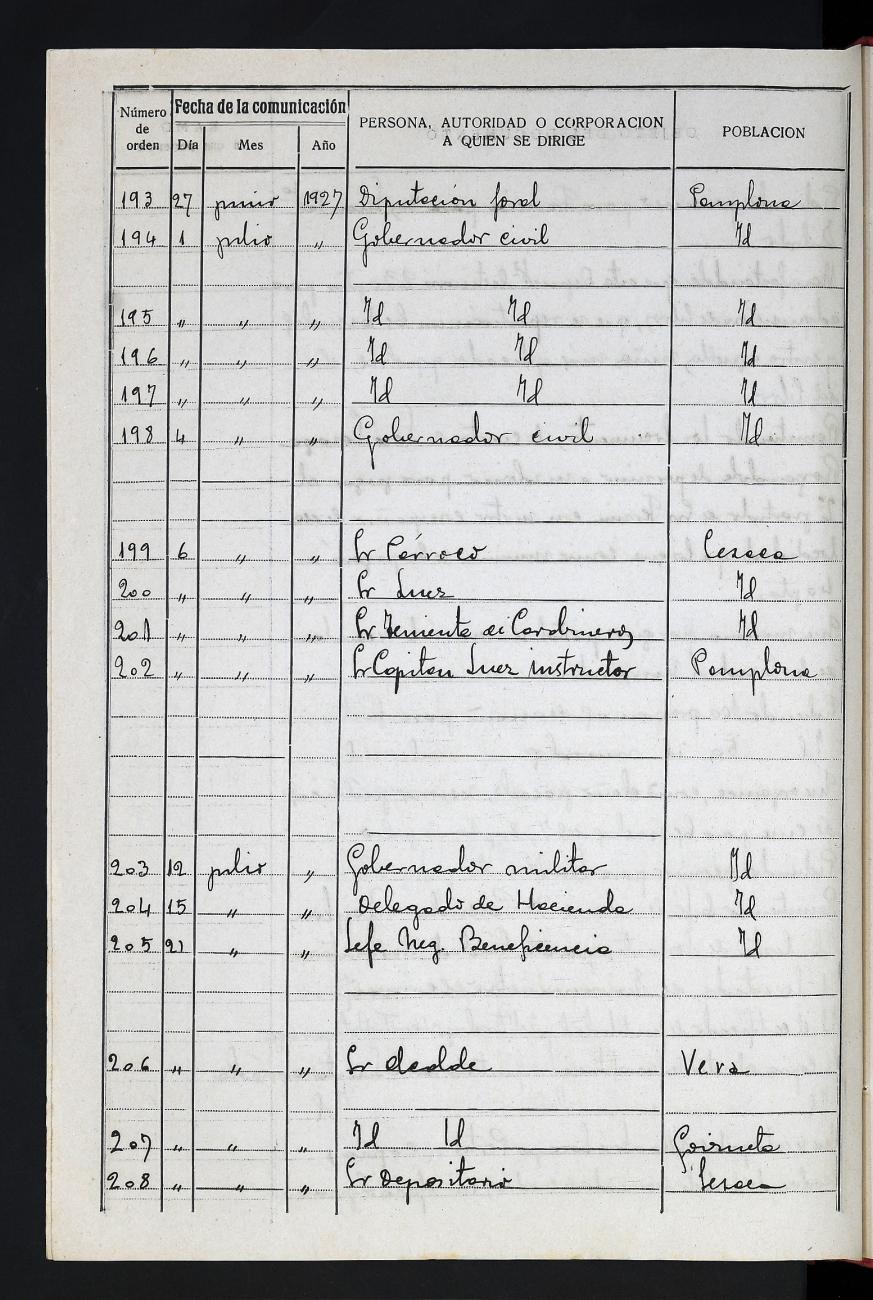 Número de orden | Fecha de la comunicación | PERSONA, AUTORIDAD O CORPORACION A QUIEN SE DIRIGE | POBLACION
Día | Mes | Año
193 27 junio 1927 Diputación foral Pamplona
194 1 julio „ Gobernador civil Id
195 „ „ „ Id Id Id
196 „ „ „ Id Id Id
197 „ „ „ Id Id Id
198 4 „ „ Gobernador civil Id
199 6 „ „ Sr Párroco Lesaca
200 „ „ „ Sr Juez Id
201 „ „ „ Sr Teniente de Carabineros Id
202 „ „ „ Sr Capitan Juez instructor Pamplona
203 12 julio „ Gobernador militar Id
204 15 „ „ Delegado de Hacienda Id
205 21 „ „ Jefe Neg. Beneficencia Id
206 „ „ „ Sr Alcalde Vera
207 „ „ „ Id Id Goizueta
208 „ „ „ Sr Depositario Lesaca